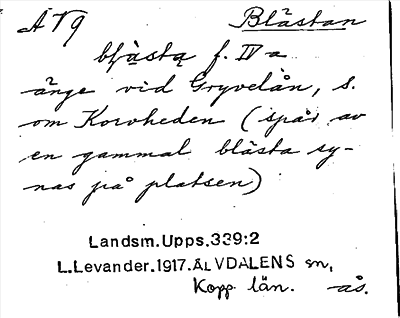 ÄVg Blästan
blä̀sta f. IV a
änge vid Gryvelån, s.
om Korvheden (spår av
en gammal blästa sy-
nas på platsen)
Landsm.Upps.339:2
L.Levander.1917.ÄLVDALENS sn,
Kopp. län. -ås.